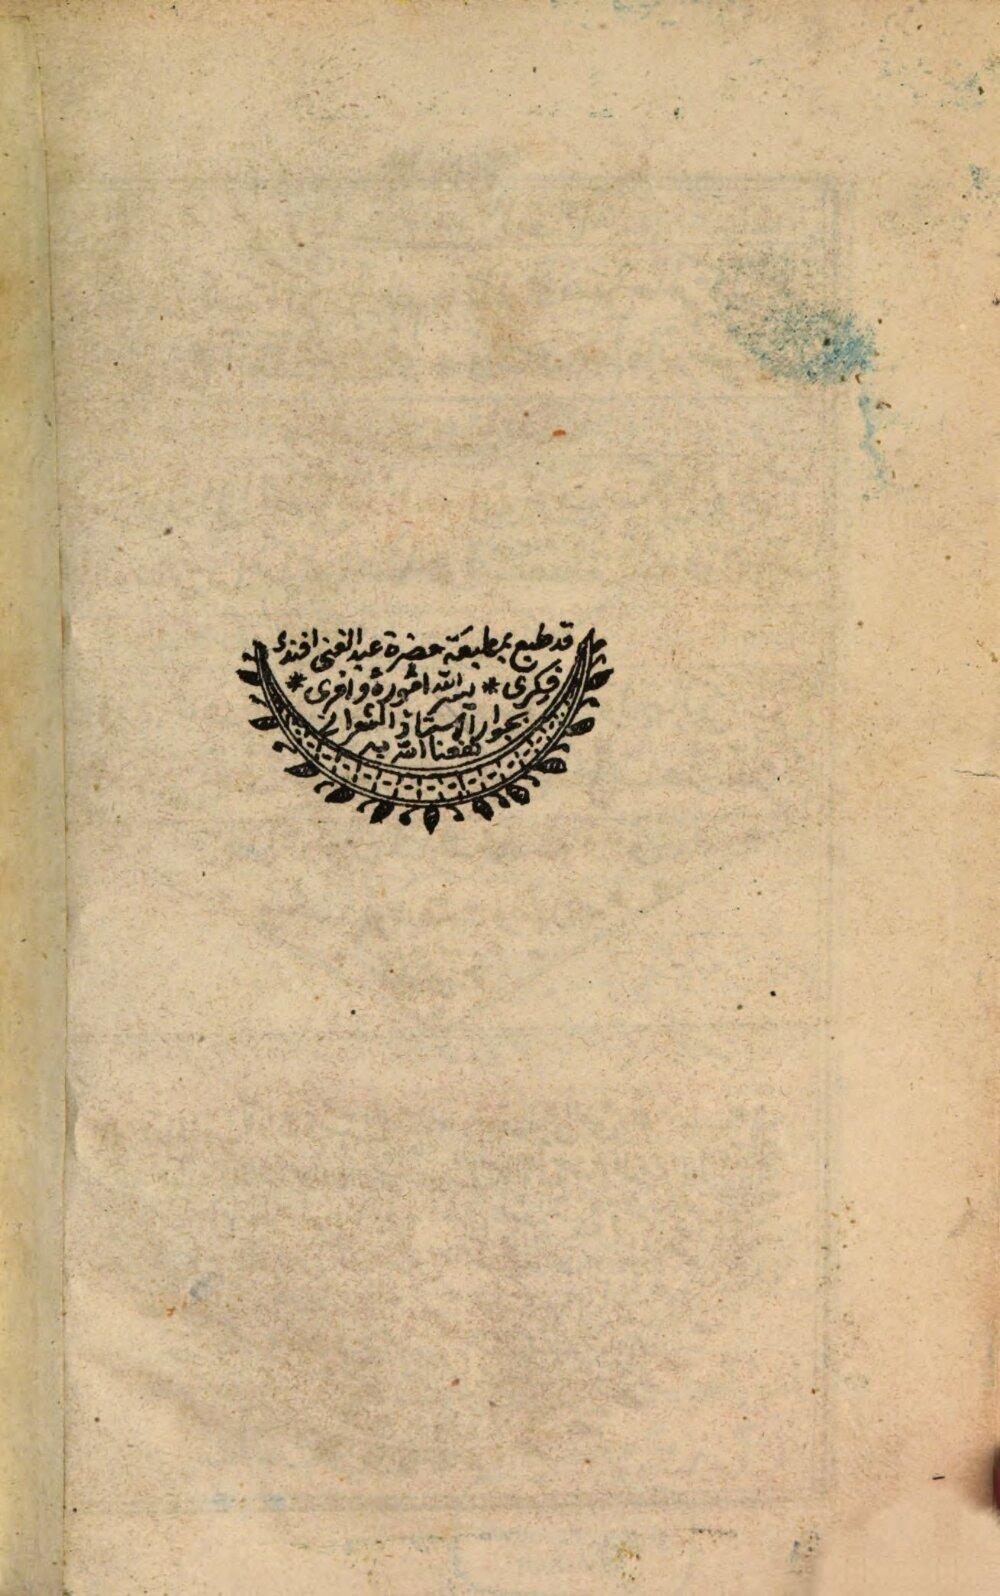 قد طبع بمطبعة حضرة عبد الغنى افندى
فكرى * يسر الله اموره وا
بجوار الاستاذ الشعرانى
نفعنا الله به